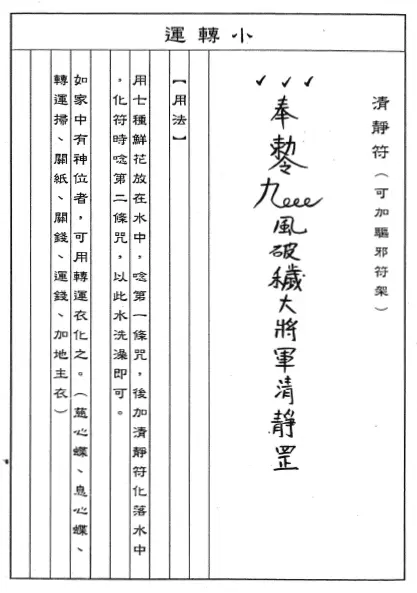 小轉運
清靜符(可加驅邪符架)
✓✓✓
奉勅令九eee風破穢大將軍清靜罡
【用法】
用七種鮮花放在水中,唸第一條咒,後加清靜符化落水中
,化符時唸第二條咒,以此水洗澡即可。
如家中有神位者,可用轉運衣化之。(慈心蝶、息心蝶、
轉運掃、關紙、關錢、運錢、加地主衣)